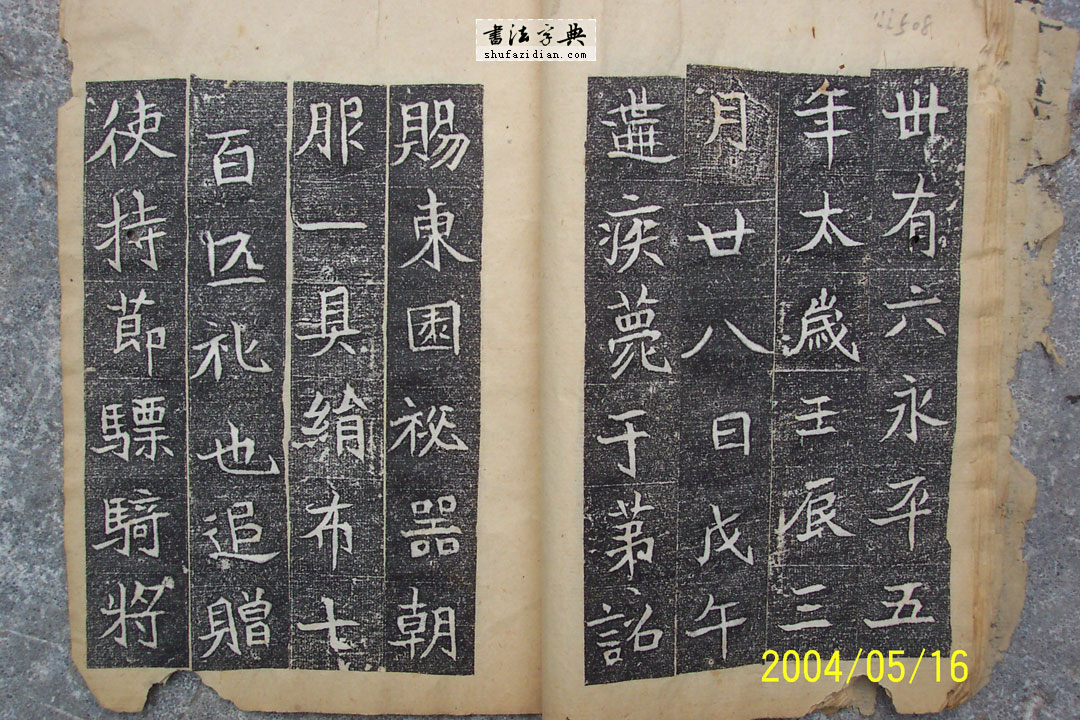 書法字典
shufazidian.com
22508
卌有六永平五
年太歲壬辰三
月廿八日戊午
遘疾薨于第詔
賜東園秘器朝
服一具絹布七
百匹礼也追贈
使持節驃騎將
2004/05/16